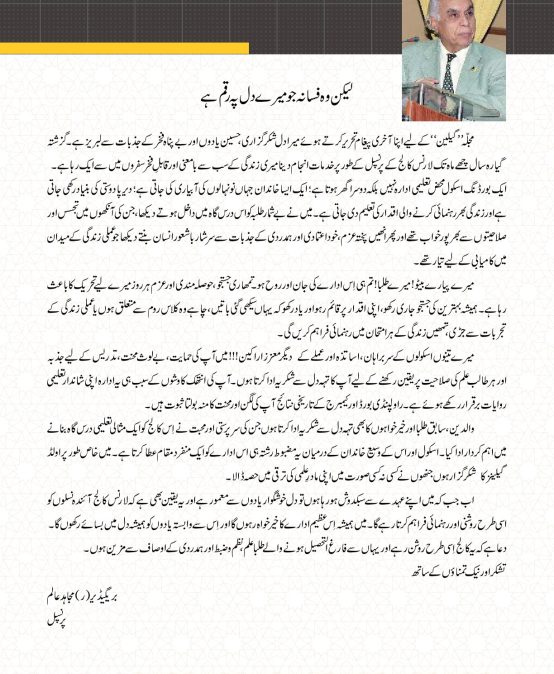 لیکن وہ فسانہ جو میرے دل پہ رقم ہے
مجلّہ ’’گیلین‘‘ کے لیے اپنا آخری پیغام تحریر کرتے ہوئے میرا دل شکر گزاری، حسین یادوں اور بے پناہ فخر کے جذبات سے لبریز ہے۔ گزشتہ
گیارہ سال چھے ماہ تک لارنس کالج کے پرنسپل کے طور پر خدمات انجام دینا میری زندگی کے سب سے بامعنی اور قابلِ فخر سفروں میں سے ایک رہا ہے۔
ایک بورڈنگ اسکول محض تعلیمی ادارہ نہیں بلکہ دوسرا گھر ہوتا ہے؛ ایک ایسا خاندان جہاں نونہالوں کی آبیاری کی جاتی ہے؛ دیرپا دوستی کی بنیاد رکھی جاتی
ہے اور زندگی بھر رہنمائی کرنے والی اقدار کی تعلیم دی جاتی ہے۔ میں نے بے شمار طلبا کو اس درس گاہ میں داخل ہوتے دیکھا، جن کی آنکھوں میں تجسس اور
صلاحیتوں سے بھرپور خواب تھے اور پھر انھیں پختہ عزم، خود اعتمادی اور ہمدردی کے جذبات سے سرشار باشعور انسان بنتے دیکھا جو عملی زندگی کے میدان
میں کامیابی کے لیے تیار تھے۔
میرے پیارے بیٹو! میرے طلبا! تم ہی اِس ادارے کی جان اور روح ہو۔ تمھاری جستجو، حوصلہ مندی اور عزم ہر روز میرے لیے تحریک کا باعث
رہا ہے۔ ہمیشہ بہترین کی جستجو جاری رکھو، اپنی اقدار پر قائم رہو اور یاد رکھو کہ یہاں سیکھی گئی باتیں، چاہے وہ کلاس روم سے متعلق ہوں یا عملی زندگی کے
تجربات سے جڑی، تمھیں زندگی کے ہر امتحان میں رہنمائی فراہم کریں گی۔
میرے تینوں اسکولوں کے سربراہان، اساتذہ اور عملے کے دیگر معزز اراکین!!! میں آپ کی حمایت، بے لوث محنت، تدریس کے لیے جذبہ
اور ہر طالب علم کی صلاحیت پر یقین رکھنے کے لیے آپ کا تہہ دل سے شکریہ ادا کرتا ہوں۔ آپ کی انتھک کاوشوں کے سبب ہی یہ ادارہ اپنی شاندار تعلیمی
روایات برقرار رکھے ہوئے ہے۔ راولپنڈی بورڈ اور کیمبرج کے تاریخی نتائج آپ کی لگن اور محنت کا منہ بولتا ثبوت ہیں۔
والدین، سابق طلبا اور خیر خواہوں کا بھی تہہ دل سے شکریہ ادا کرتا ہوں جن کی سرپرستی اور محبت نے اِس کالج کو ایک مثالی تعلیمی درس گاہ بنانے
میں اہم کردار ادا کیا۔ اسکول اور اس کے وسیع خاندان کے درمیان یہ مضبوط رشتہ ہی اس ادارے کو ایک منفرد مقام عطا کرتا ہے۔ میں خاص طور پر اولڈ
گیلینز کا شکر گزار ہوں جنھوں نے کسی نہ کسی صورت میں اپنی مادرِ علمی کی ترقی میں حصہ ڈالا۔
اب جب کہ میں اپنے عہدے سے سبکدوش ہو رہا ہوں تو دل خوشگوار یادوں سے معمور ہے اور یہ یقین بھی ہے کہ لارنس کالج آئندہ نسلوں کو
اسی طرح روشنی اور رہنمائی فراہم کرتا رہے گا۔ میں ہمیشہ اِس عظیم ادارے کا خیر خواہ رہوں گا اور اس سے وابستہ یادوں کو ہمیشہ دل میں بسائے رکھوں گا۔
دعا ہے کہ یہ کالج اسی طرح روشن رہے اور یہاں سے فارغ التحصیل ہونے والے طلبا علم، نظم و ضبط اور ہمدردی کے اوصاف سے مزین ہوں۔
تشکر اور نیک تمناؤں کے ساتھ
بریگیڈیر (ر) مجاہد عالم
پرنسپل